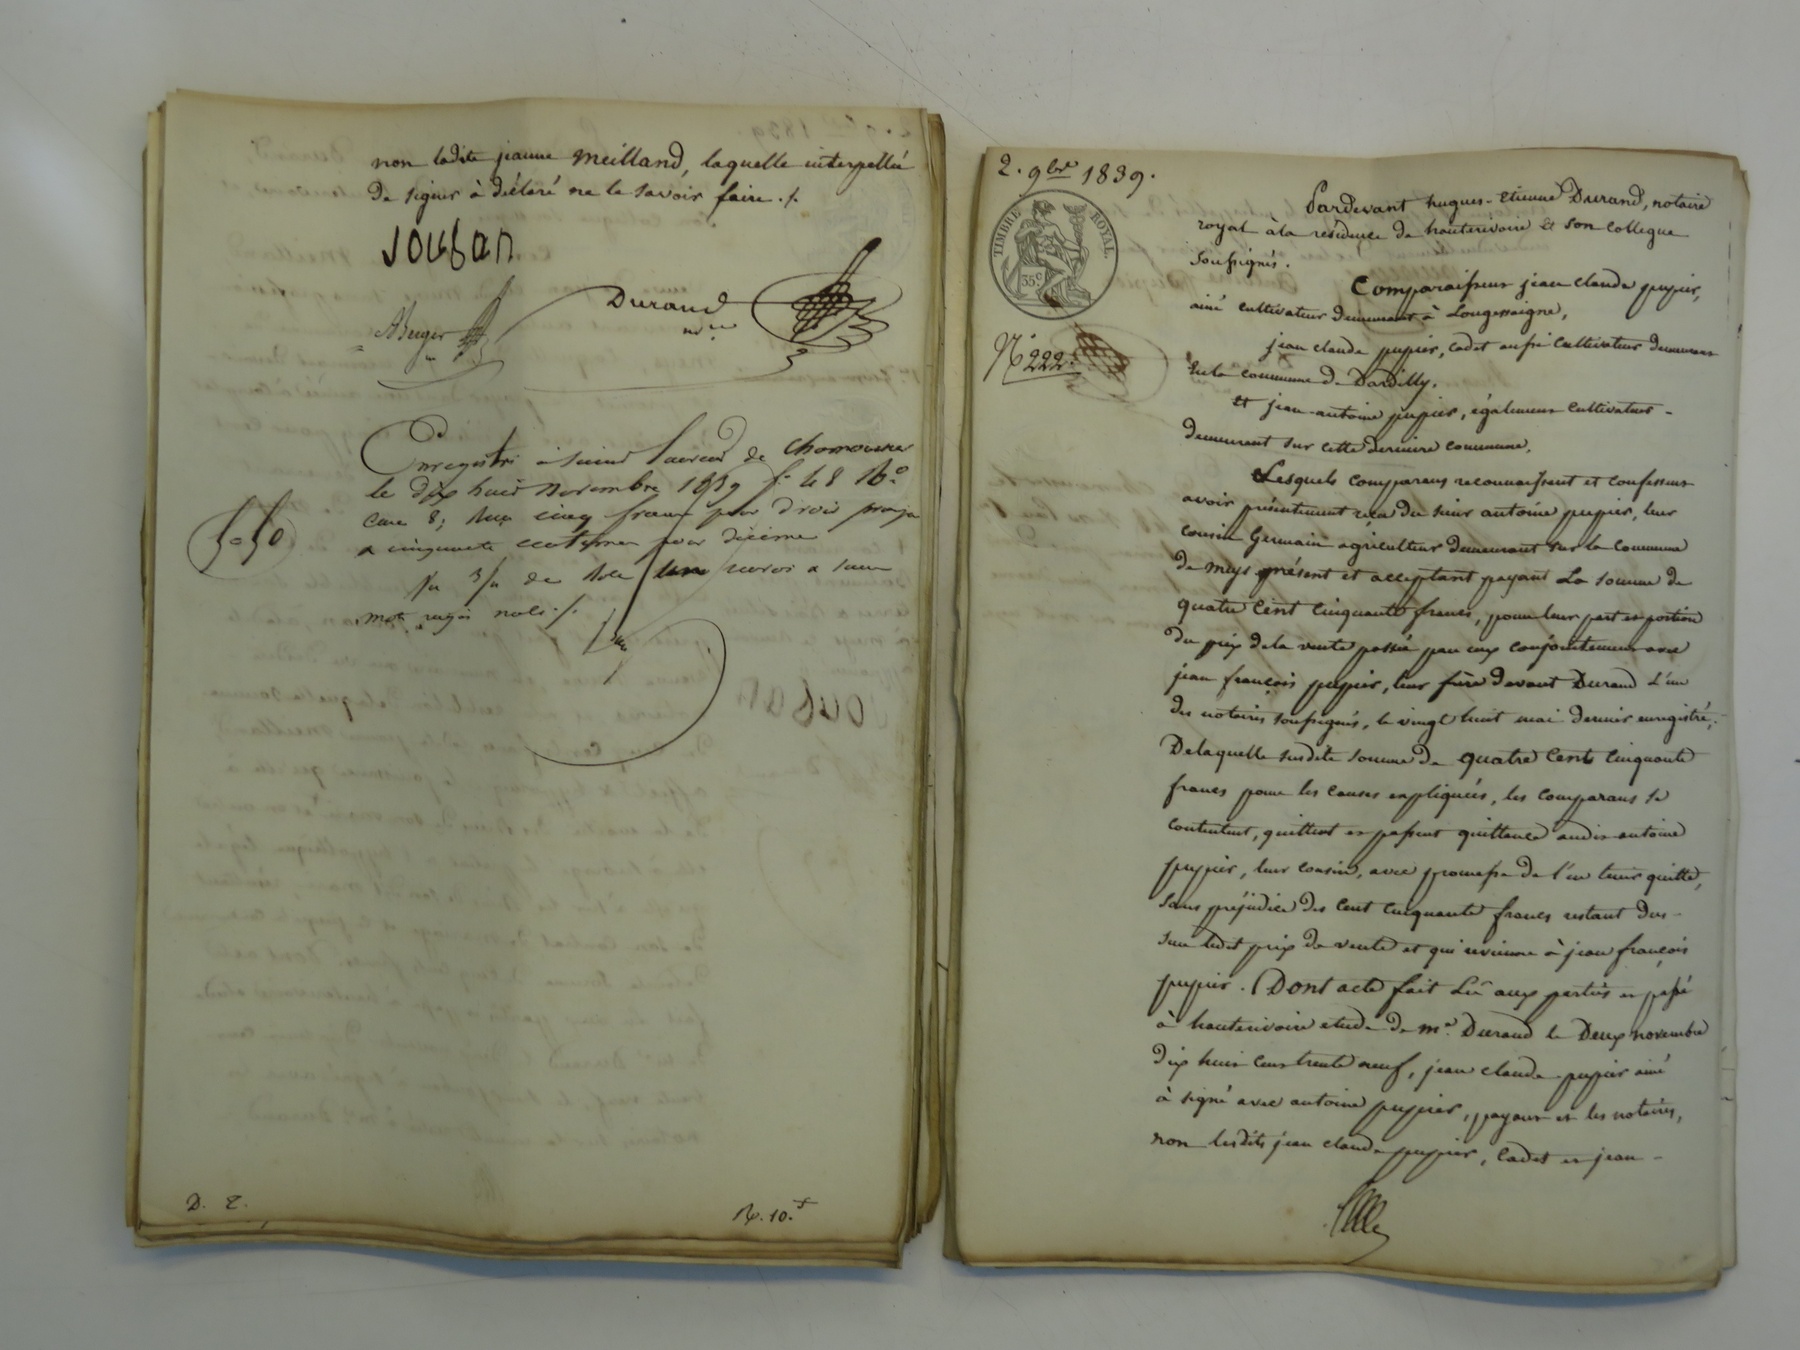 non ladite jeanne Meilland, laquelle interpellée
de signer à déclaré ne le savoir faire ./.
Jouban
Durand
nore
ABerger
Enregistré à Saint Laurent de Chamousset
le dix huit novembre 1839 fo 48 Ro
case 8; Reçu cinq francs pour droit
a cinquante centimes pour décime
5=50
mots rayés nuls ./.
D. 2.
R. 10. f
2. 9bre 1839.
TIMBRE ROYAL.
35 c
No 222.
Pardevant hugues-Etienne Durand, notaire
royal à la résidence de hauterivoire & son collegue
soussignés.
Comparaissent jean claude pupier,
ainé cultivateur demeurant à Longessaigne,
jean claude pupier, cadet aussi Cultivateur demeurant
sur la commune de Dardilly.
et jean-antoine pupier, également cultivateur -
demeurant sur cette derniere commune,
Lesquels comparans reconnaissent et confessent
avoir présentement reçu du sieur antoine pupier, leur
cousin Germain agriculteur demeurant sur la commune
de meys présent et acceptant payant La somme de
quatre Cent Cinquante francs, pour leur part et portion
du prix de la vente passée par eux conjointement avec
jean françois pupier, leur frère devant Durand L'un
des notaires soussignés, le vingt huit mai dernier enregistré;
De laquelle susdite somme de quatre Cent Cinquante
francs pour les causes expliquées, les comparans se
contentent, quittent et passent quittance audit antoine
pupier, leur cousin, avec promesse de l'en tenir quitte,
sans préjudice des Cent cinquante francs restant dus -
sur ledit prix de vente et qui revienne à jean françois
pupier. Dont acte fait Lu aux parties et passé
à hauterivoire etude de me. Durand le Deux novembre
dix huit cent trente neuf, jean claude pupier ainé
à signé avec antoine pupier, payant et les notaires,
non lesdits jean claude pupier, Cadet et jean -